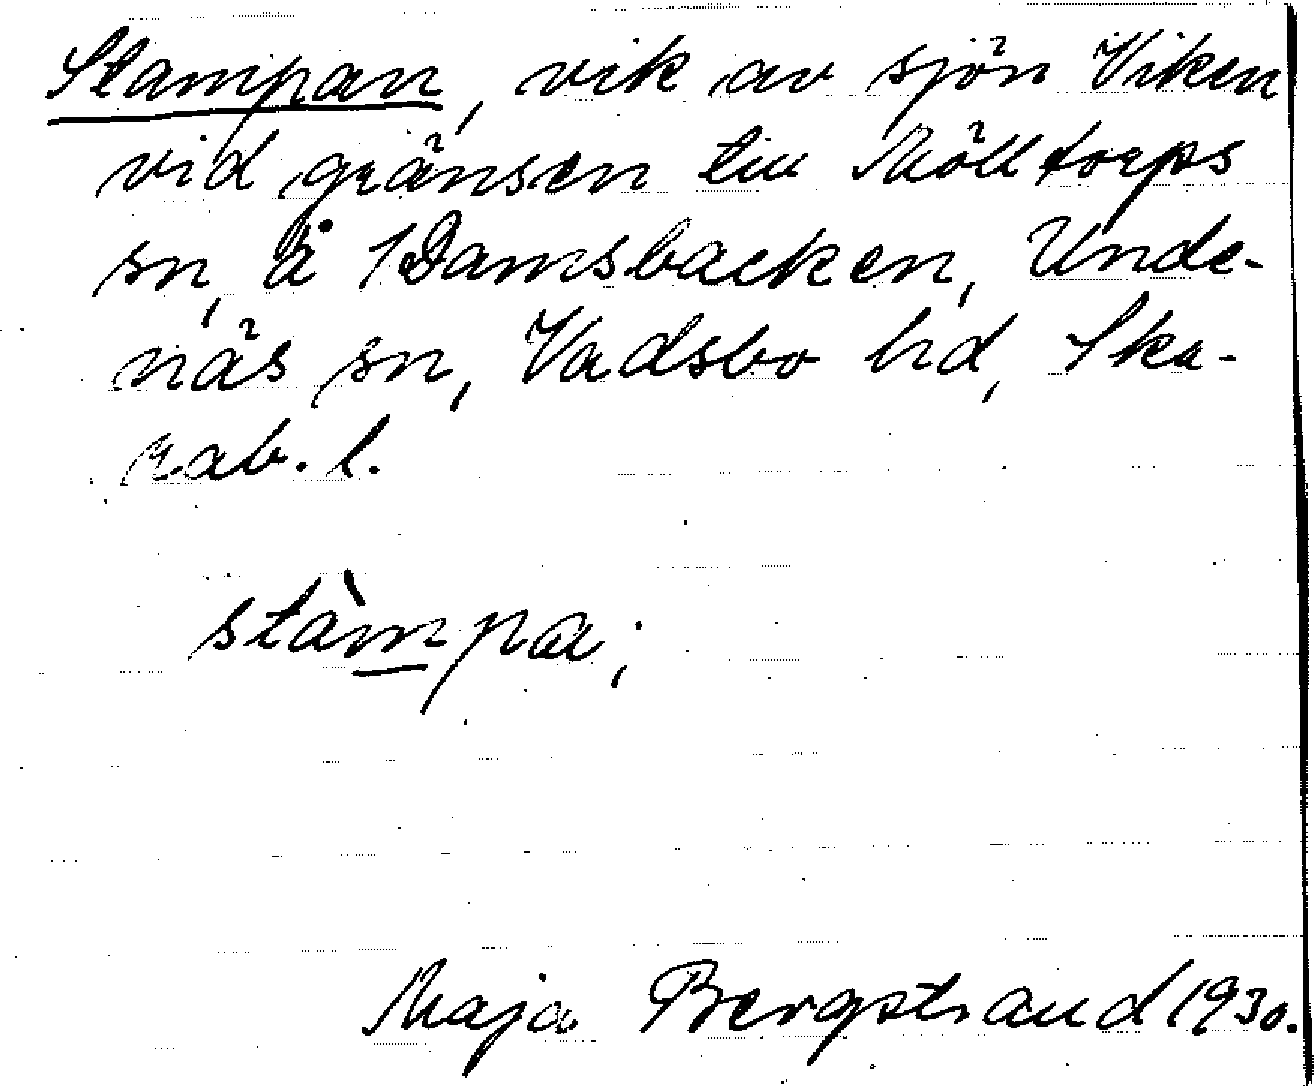 Stampan, vik av sjön Viken
vid gränsen till Mölltorps
sn, å 1 Damsbacken, Unde-
näs sn, Vadsbo hd, Ska-
rab. l.
stàmpa;
Maja Bergstrand 1930.